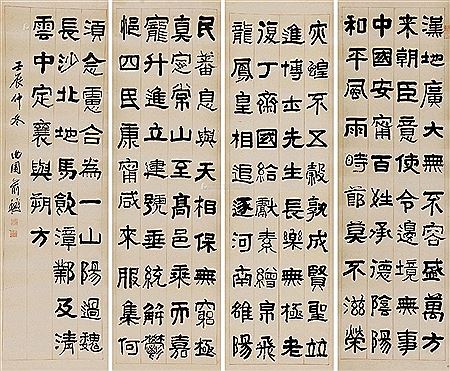 漢地廣大無不容盛萬方
来朝臣意使令邊境無事
中國安甯百姓承德陰陽
和平風雨時節莫不滋榮
灾蝗不五穀孰成賢聖竝
進博士先生長樂無極老
復丁齊國給獻素繒帛飛
龍鳳皇相追逐河南雒陽
民蕃息與天相保無窮極
真定常山至高邑乘而嘉
寵升進立建號垂統解鬱
悒四民康甯咸来服集何
須念慮合為一山陽過魏
長沙北地馬飲漳鄴及清
雲中定襄與朔方
壬辰仲冬 曲園俞樾